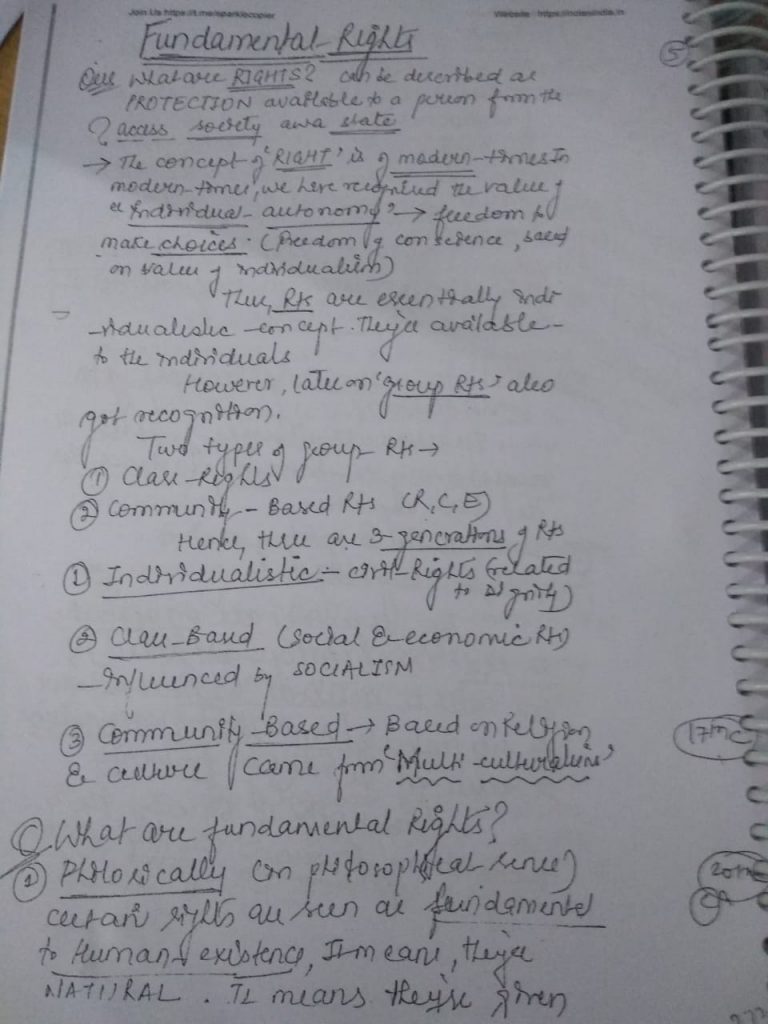 Join Us https://t.me/sparklecopier
Website : https://notesindia.in
Fundamental Rights
5
Que What are RIGHTS? can be described as
PROTECTION available to a person from the
? access society and state
→ The concept of 'RIGHT' is of modern-times In
modern-times, we have recognised the value of
"individual autonomy" → freedom to
make choices. (Freedom of conscience, based
on value of individualism)
Thus, Rts are essentially indi
-vidualistic concept. They're available
to the individuals
However, later on 'group Rts' also
got recognition.
Two types of group Rts →
① Class-Rights
② Community-Based Rts (R, C, E)
Hence, there are 3-generations of Rts
① Individualistic - civil-Rights (related
to Dignity)
② Class-Based (Social & economic Rts)
- Influenced by SOCIALISM
③ Community-Based → Based on Religion
17th C
& culture Came from 'Multi-culturalism'
Q What are fundamental Rights?
① Philosically (in philosophical sense)
20th C
certain rights are seen as fundamental
to Human existence, It means, they're
NATURAL. It means they're given